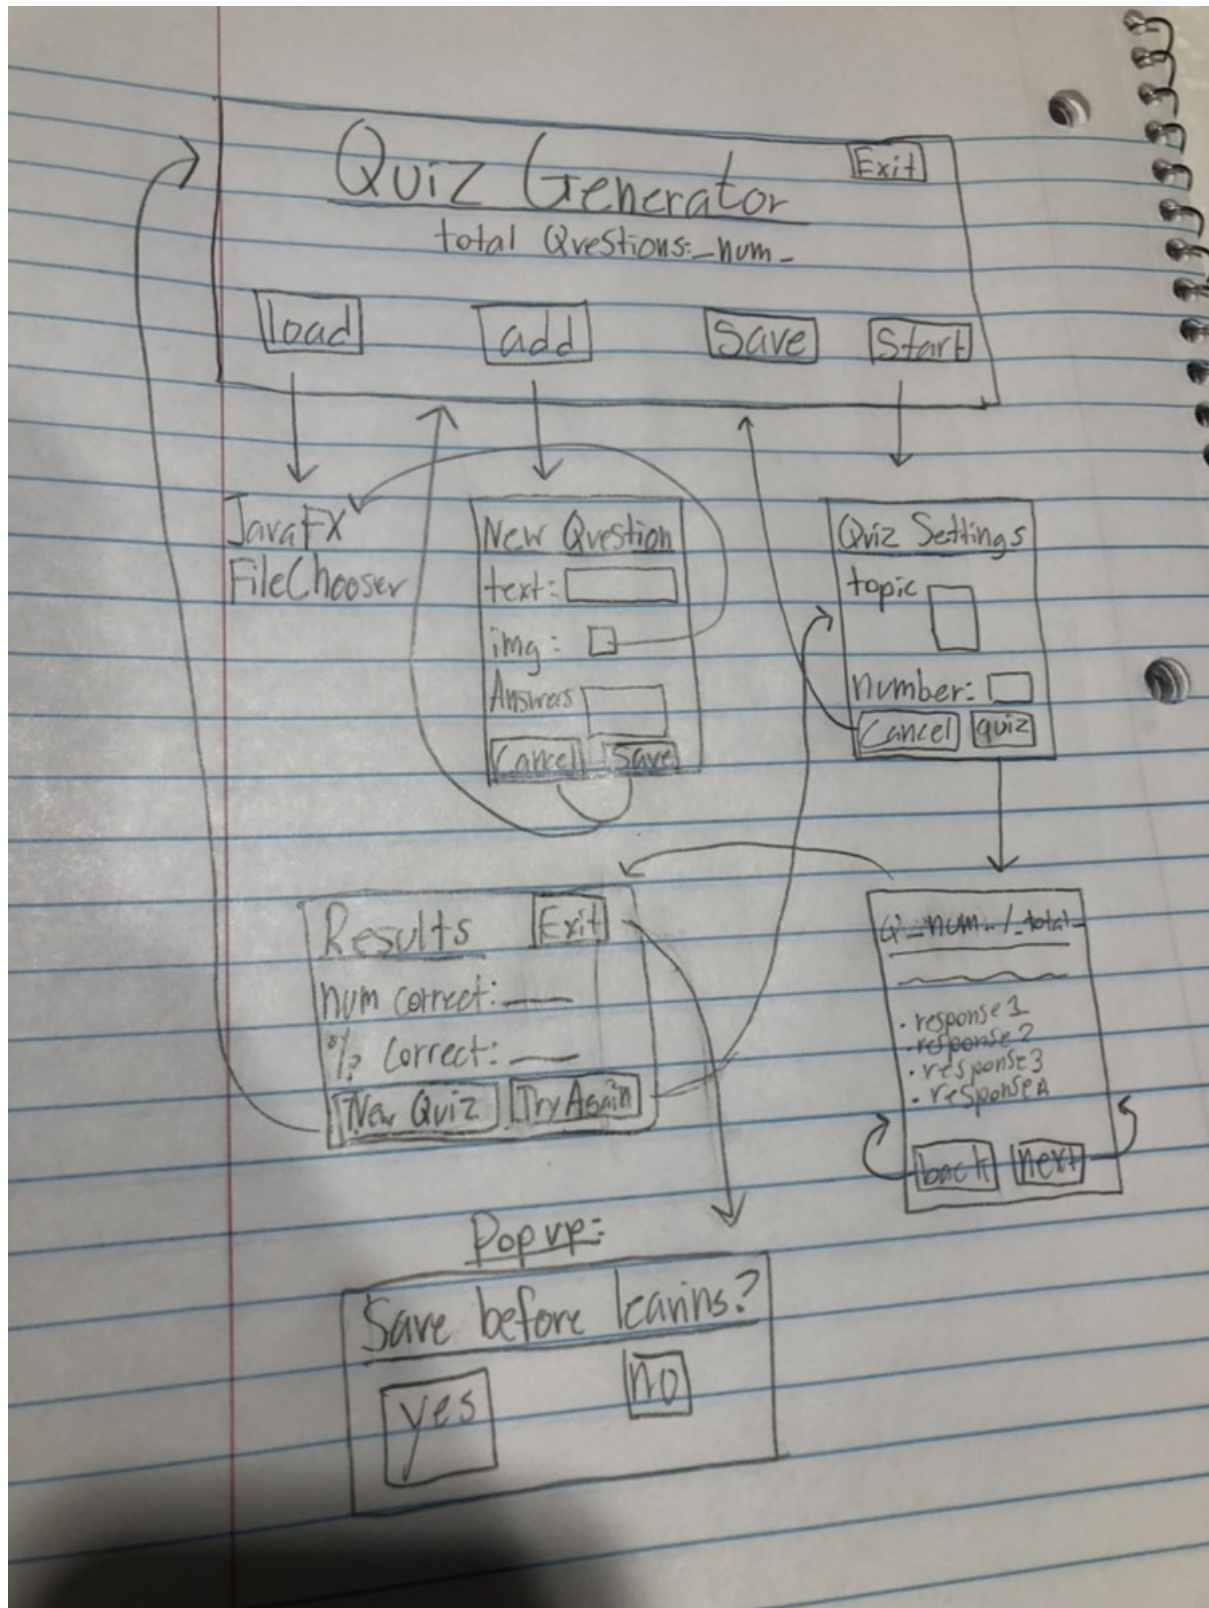 Quiz Generator
Exit
total Questions: _num_
load
add
Save
Start
JavaFX
FileChooser
New Question
text:
img:
Answers
Cancel
Save
Quiz Settings
topic
number:
Cancel
quiz
Results
Exit
num correct:
% Correct:
New Quiz
Try Again
Q _num_ / _total_
• response 1
• response 2
• response 3
• response 4
back
next
Popup:
Save before leaving?
yes
no